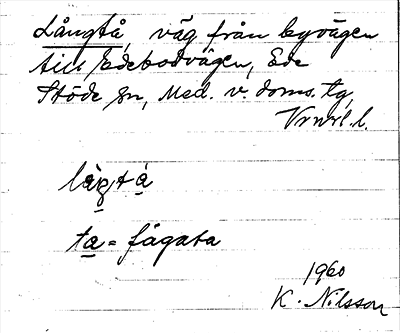 Långtå, väg från byvägen
till Edebodvägen, Ede
Stöde sn, Med. v. doms. tg,
Vrnrl. l.
ta = fägata
1960
K. Nilsson